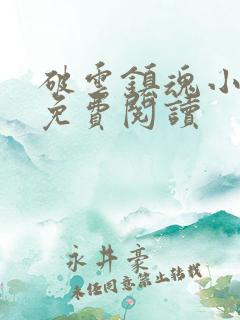 破雲鎮魂小
免費閱讀
永井豪
未經同意禁止轉載